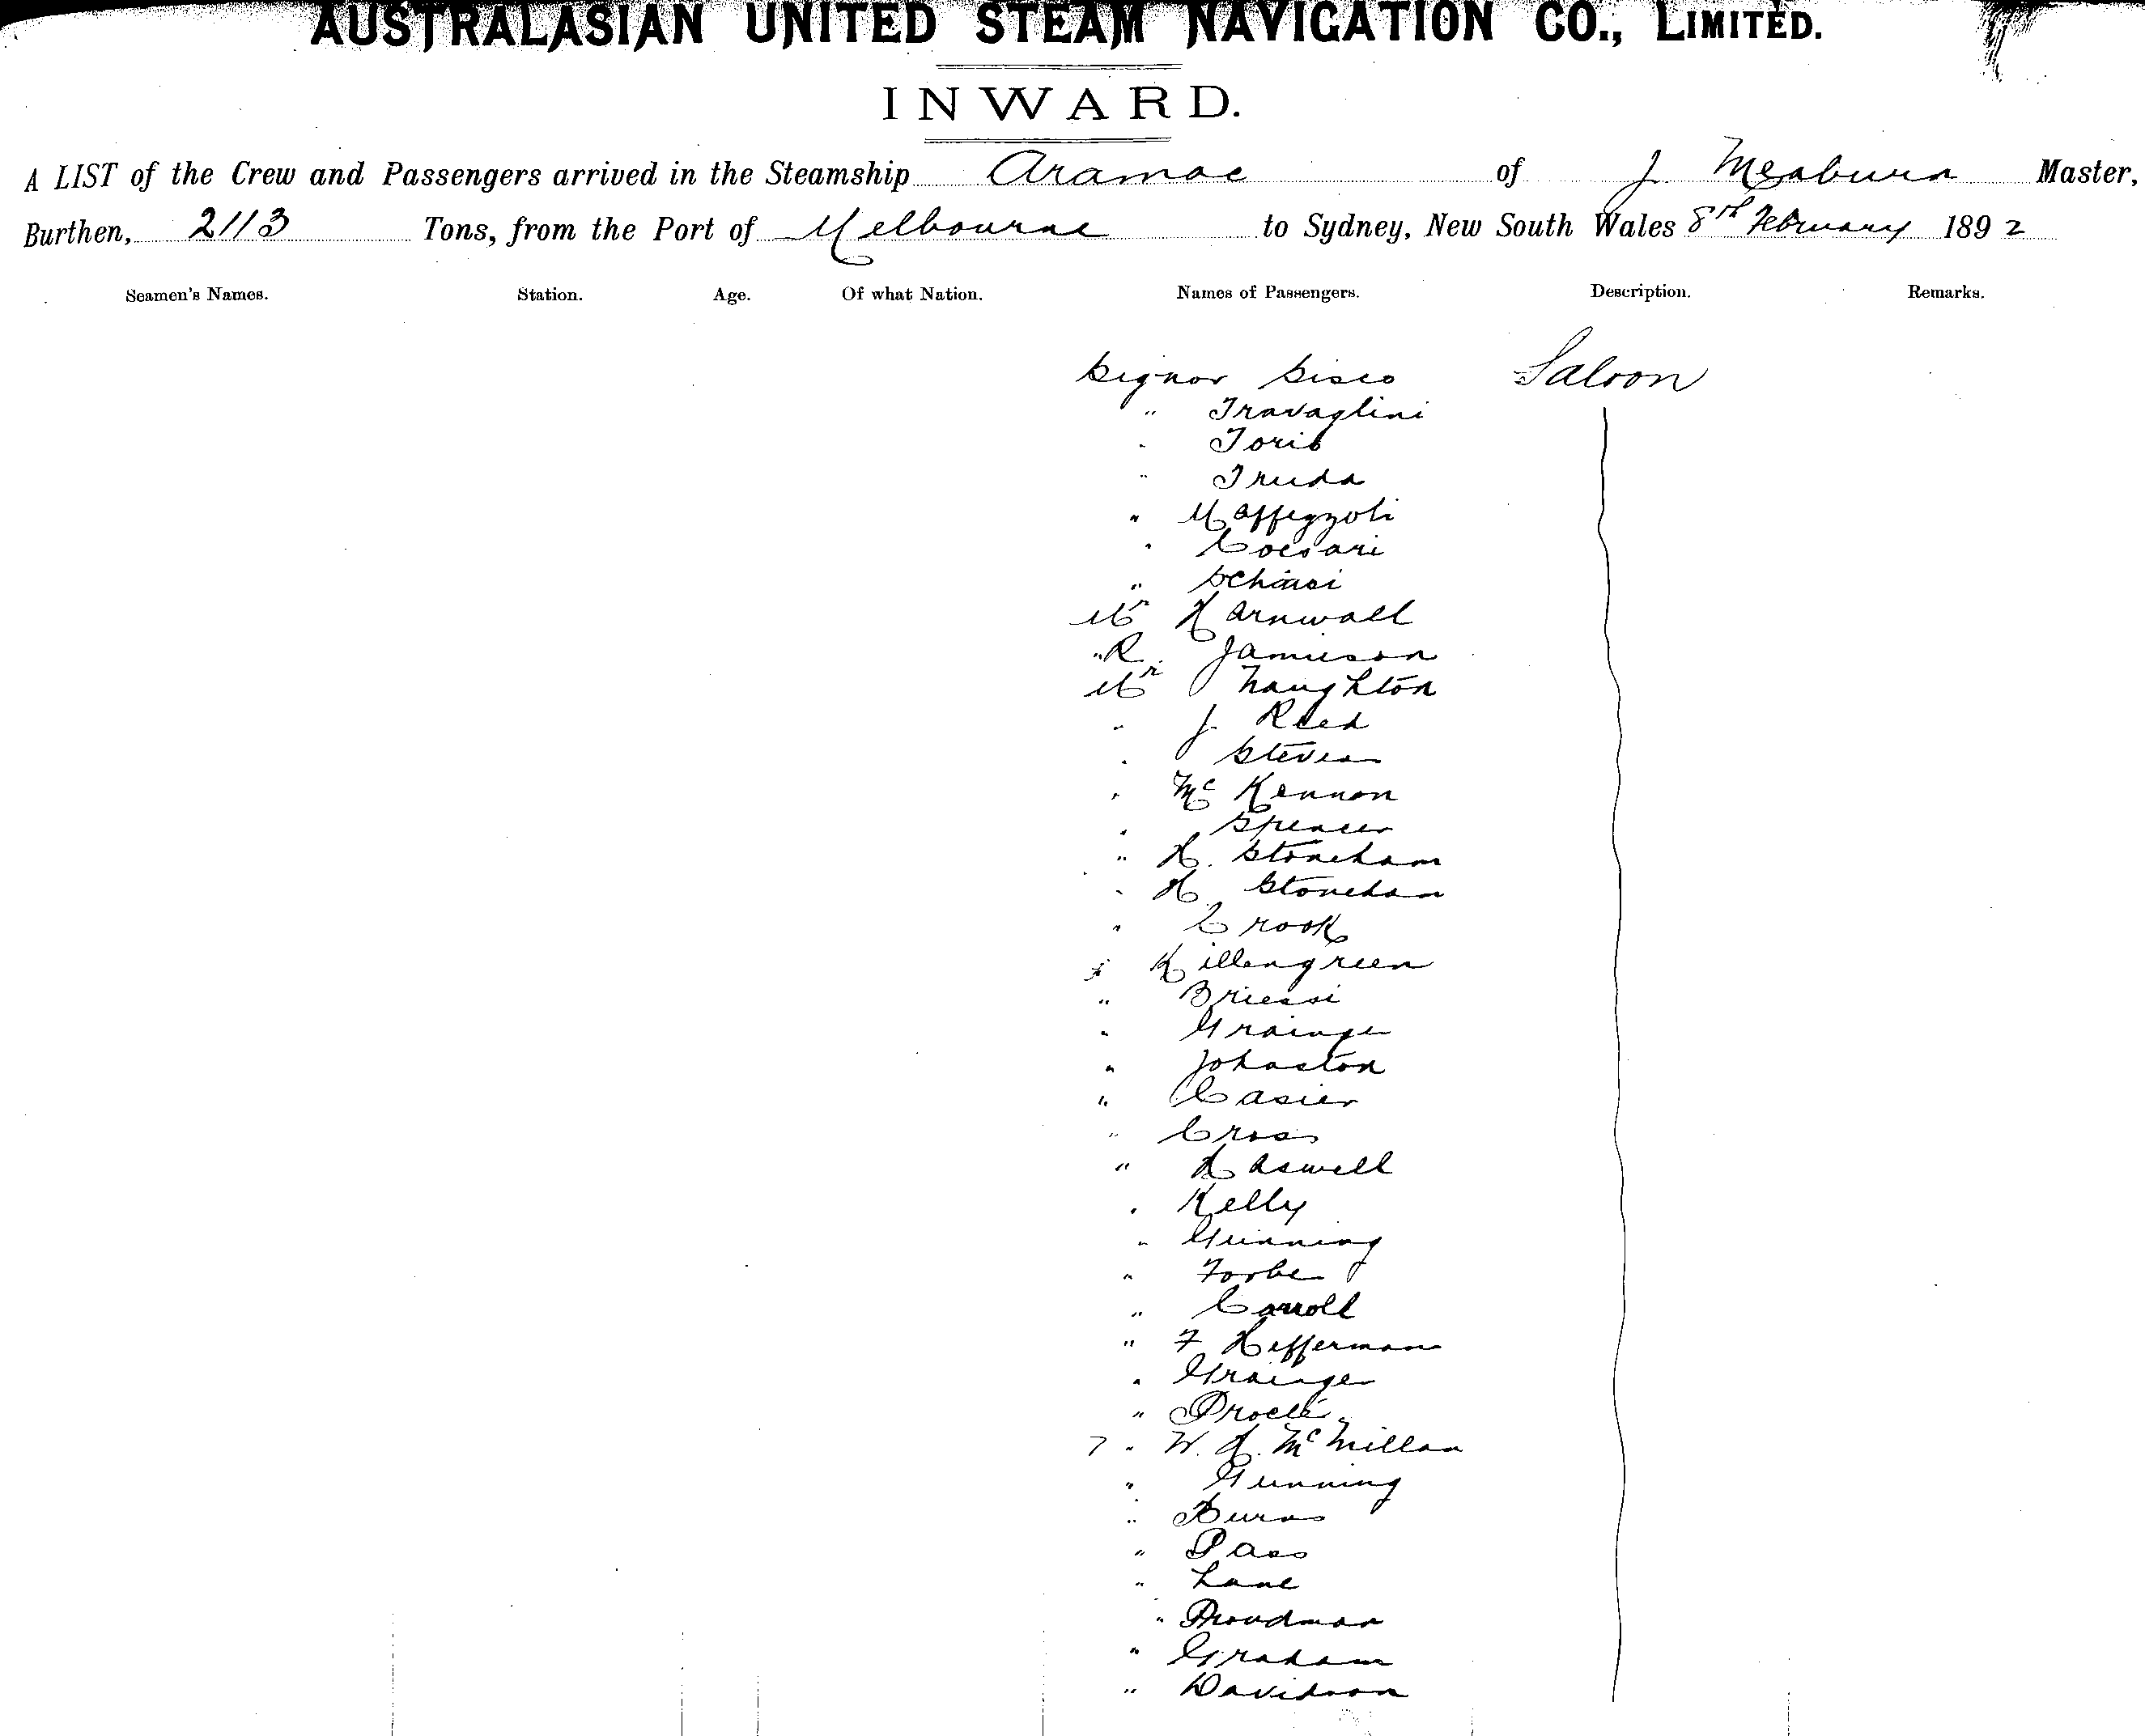 AUSTRALASIAN UNITED STEAM NAVIGATION CO., LIMITED.
INWARD.
A LIST of the Crew and Passengers arrived in the Steamship Aramac of J. Meaburn Master,
Burthen, 2113 Tons, from the Port of Melbourne to Sydney, New South Wales 8th February 1892
Seamen's Names. Station. Age. Of what Nation. Names of Passengers. Description. Remarks.
Signor Sisco Saloon
" Travaglini
" Toris
" Truda
" Maffegzoli
" Coesari
" Schiassi
Mr Harnwall
" R. Jamieson
Mr Naughton
" J. Reed
" Steven
" McKennon
" Spencer
" H. Stoneham
" H. Stoneham
" Crook
" Killengreen
" Briessi
" Grainge
" Johnston
" Casier
" Cross
" Haswell
" Kelly
" Gunning
" Forbe
" Carroll
" F Hefferman
" Grainger
" Procte
7 " W. H. McMillan
" Gunning
" Burns
" Pass
" Lane
" Proudman
" Graham
" Davidson